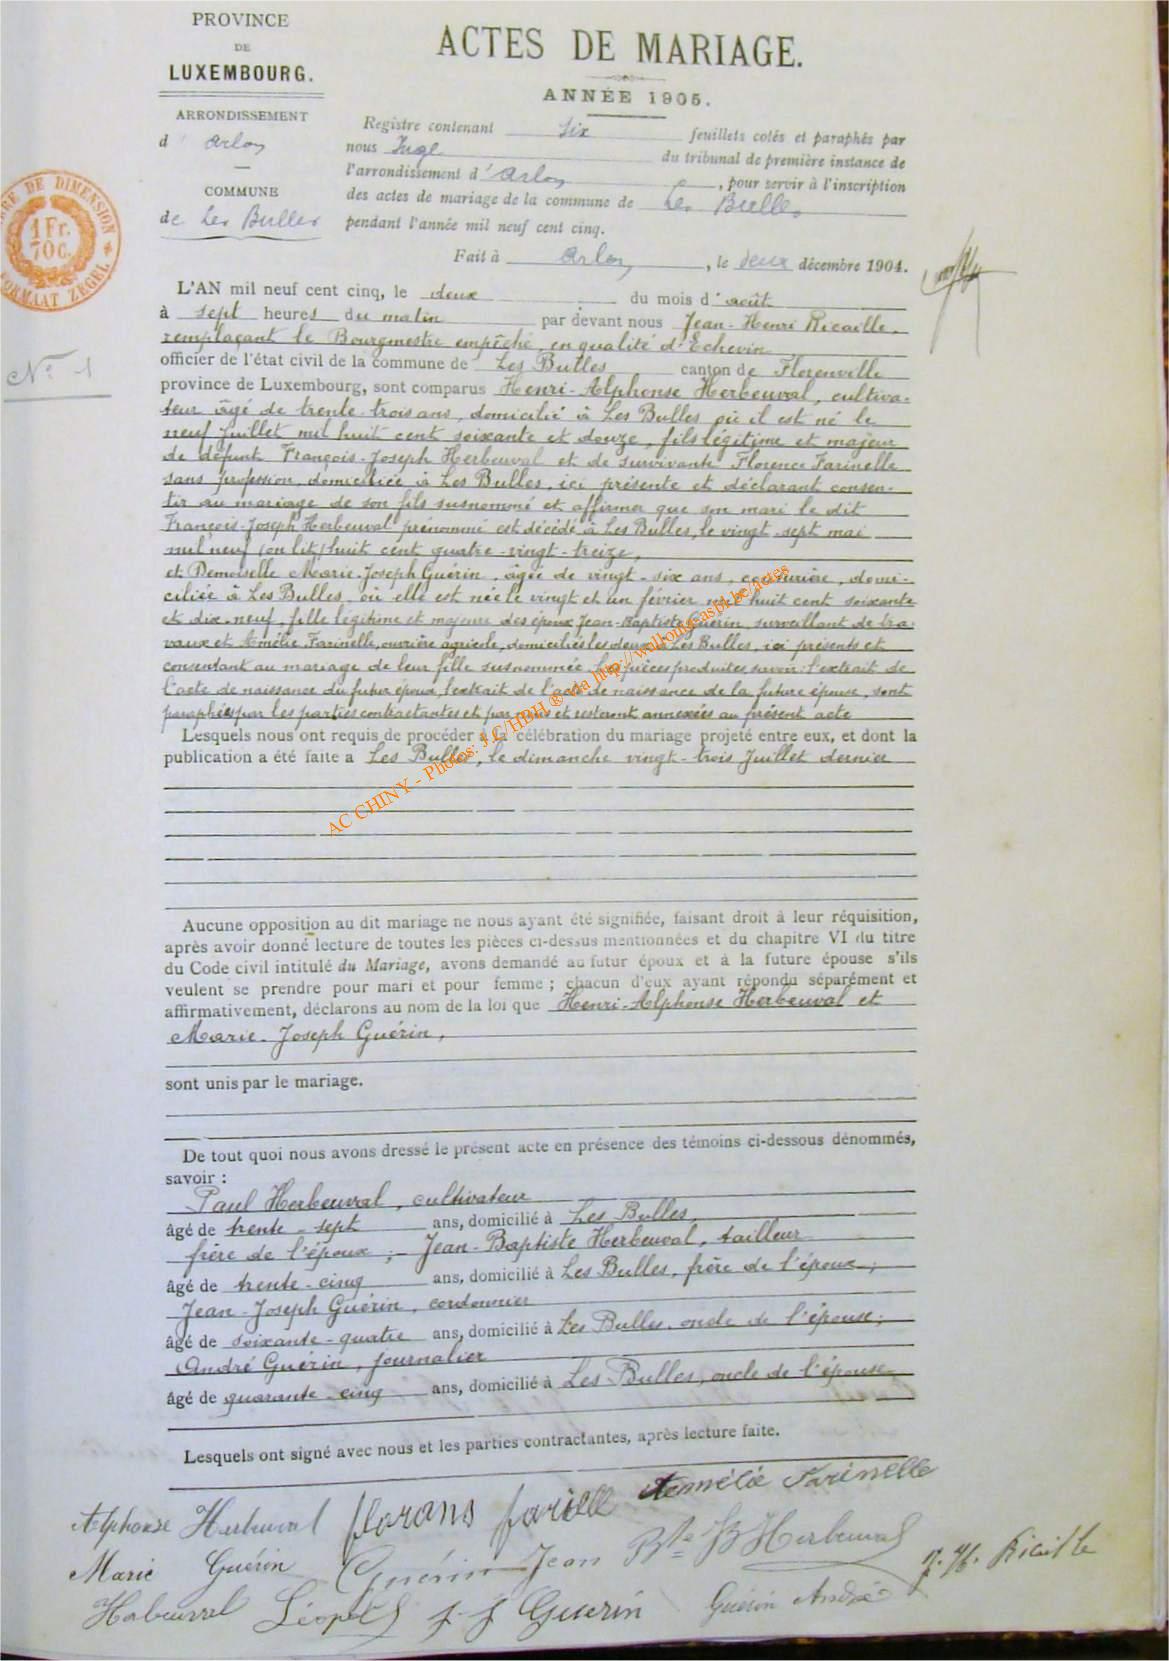 PROVINCE
DE
LUXEMBOURG.
ARRONDISSEMENT
d' Arlon
COMMUNE
de Les Bulles
ACTES DE MARIAGE.
ANNÉE 1905.
Registre contenant six feuillets cotés et paraphés par
nous Juge du tribunal de première instance de
l'arrondissement d'Arlon, pour servir à l'inscription
des actes de mariage de la commune de Les Bulles
pendant l'année mil neuf cent cinq.
Fait à Arlon, le deux décembre 1904.
1 Fr.
70 c.
N° 1
L'AN mil neuf cent cinq, le deux du mois d'août
à sept heures du matin par devant nous Jean-Henri Ricaille,
remplaçant le Bourgmestre empêché, en qualité d'Echevin
officier de l'état civil de la commune de Les Bulles canton de Florenville
province de Luxembourg, sont comparus Henri-Alphonse Herbeuval, cultiva-
teur âgé de trente-trois ans, domicilié à Les Bulles où il est né le
neuf Juillet mil huit cent soixante et douze, fils légitime et majeur
de défunt François-Joseph Herbeuval et de survivante Florence Farinelle
sans profession, domiciliée à Les Bulles, ici présente et déclarant consen-
tir au mariage de son fils susnommé et affirmer que son mari le dit
François-Joseph Herbeuval prénommé est décédé à Les Bulles, le vingt-sept mai
mil neuf (on lit) huit cent quatre-vingt-treize,
et Demoiselle Marie-Joseph Guérin, âgée de vingt-six ans, couturière, domi-
ciliée à Les Bulles, où elle est née le vingt et un février mil huit cent soixante
et dix-neuf, fille légitime et majeure des époux Jean-Baptiste Guérin, surveillant de tra-
vaux et Amélie Farinelle, ouvrière agricole, domiciliés les deux à Les Bulles, ici présents et
consentant au mariage de leur fille susnommée. Les pièces produites, savoir: l'extrait de
l'acte de naissance du futur époux, l'extrait de l'acte de naissance de la future épouse, sont
paraphées par les parties contractantes et par nous et resteront annexées au présent acte
Lesquels nous ont requis de procéder à la célébration du mariage projeté entre eux, et dont la
publication a été faite à Les Bulles, le dimanche vingt-trois Juillet dernier
AC CHINY - Photos: J.C/HBH ® via http://wallonie-asbl.be/actes
Aucune opposition au dit mariage ne nous ayant été signifiée, faisant droit à leur réquisition,
après avoir donné lecture de toutes les pièces ci-dessus mentionnées et du chapitre VI du titre
du Code civil intitulé du Mariage, avons demandé au futur époux et à la future épouse s'ils
veulent se prendre pour mari et pour femme ; chacun d'eux ayant répondu séparément et
affirmativement, déclarons au nom de la loi que Henri-Alphonse Herbeuval et
Marie-Joseph Guérin,
sont unis par le mariage.
De tout quoi nous avons dressé le présent acte en présence des témoins ci-dessous dénommés,
savoir :
Paul Herbeuval, cultivateur
âgé de trente-sept ans, domicilié à Les Bulles,
frère de l'époux ; Jean-Baptiste Herbeuval, tailleur
âgé de trente-cinq ans, domicilié à Les Bulles, frère de l'époux ;
Jean-Joseph Guérin, cordonnier
âgé de soixante-quatre ans, domicilié à Les Bulles, oncle de l'épouse ;
André Guérin, journalier
âgé de quarante-cinq ans, domicilié à Les Bulles, oncle de l'épouse
Lesquels ont signé avec nous et les parties contractantes, après lecture faite.
Alphonse Herbeuval florans farielle Amélie Farinelle
Marie Guérin Guérin Jean Bte JB Herbeuval J. H. Ricaille
Herbeuval Léopold J. J Guerin Guérin André